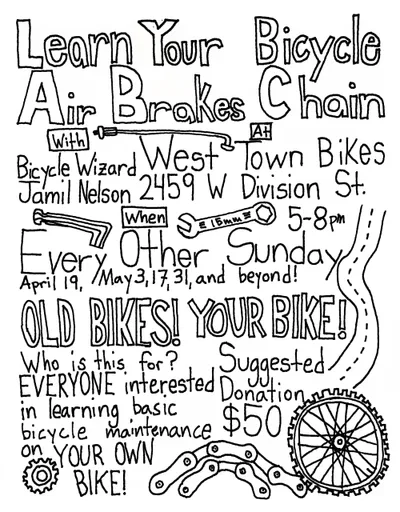 Learn Your Bicycle
Air Brakes Chain
With
At
Bicycle Wizard
Jamil Nelson
West Town Bikes
2459 W Division St.
When
15mm
5-8pm
Every Other Sunday
April 19, May 3, 17, 31, and beyond!
OLD BIKES! YOUR BIKE!
Who is this for?
EVERYONE interested
in learning basic
bicycle maintenance
on YOUR OWN
BIKE!
Suggested
Donation
$50